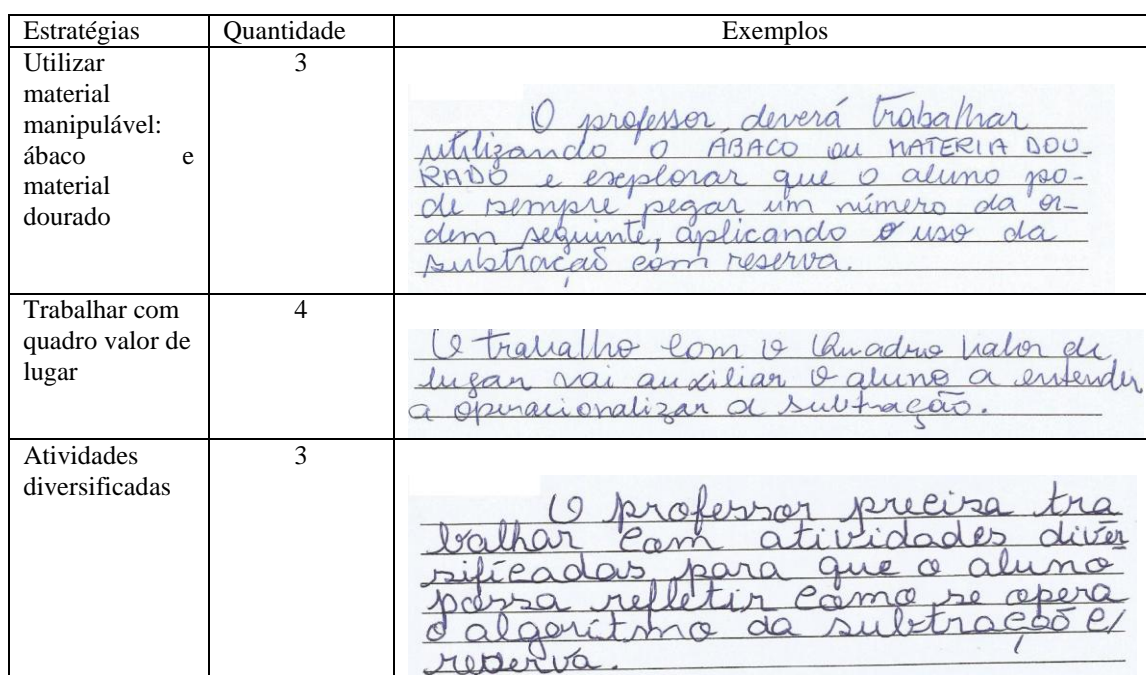 Estratégias Quantidade Exemplos
Utilizar 3
material
manipulável:
ábaco e
material
dourado
O professor deverá trabalhar
utilizando o ÁBACO ou MATERIA DOU-
RADO e explorar que o aluno po-
de sempre pegar um número da or-
dem seguinte, aplicando o uso da
subtração com reserva.
Trabalhar com 4
quadro valor de
lugar
O trabalho com o Quadro valor de
lugar vai auxiliar o aluno a entender
a operacionalizar a subtração.
Atividades 3
diversificadas
O professor precisa tra
balhar com atividades diver
sificadas para que o aluno
possa refletir como se opera
o algorítmo da subtração c/
reserva.